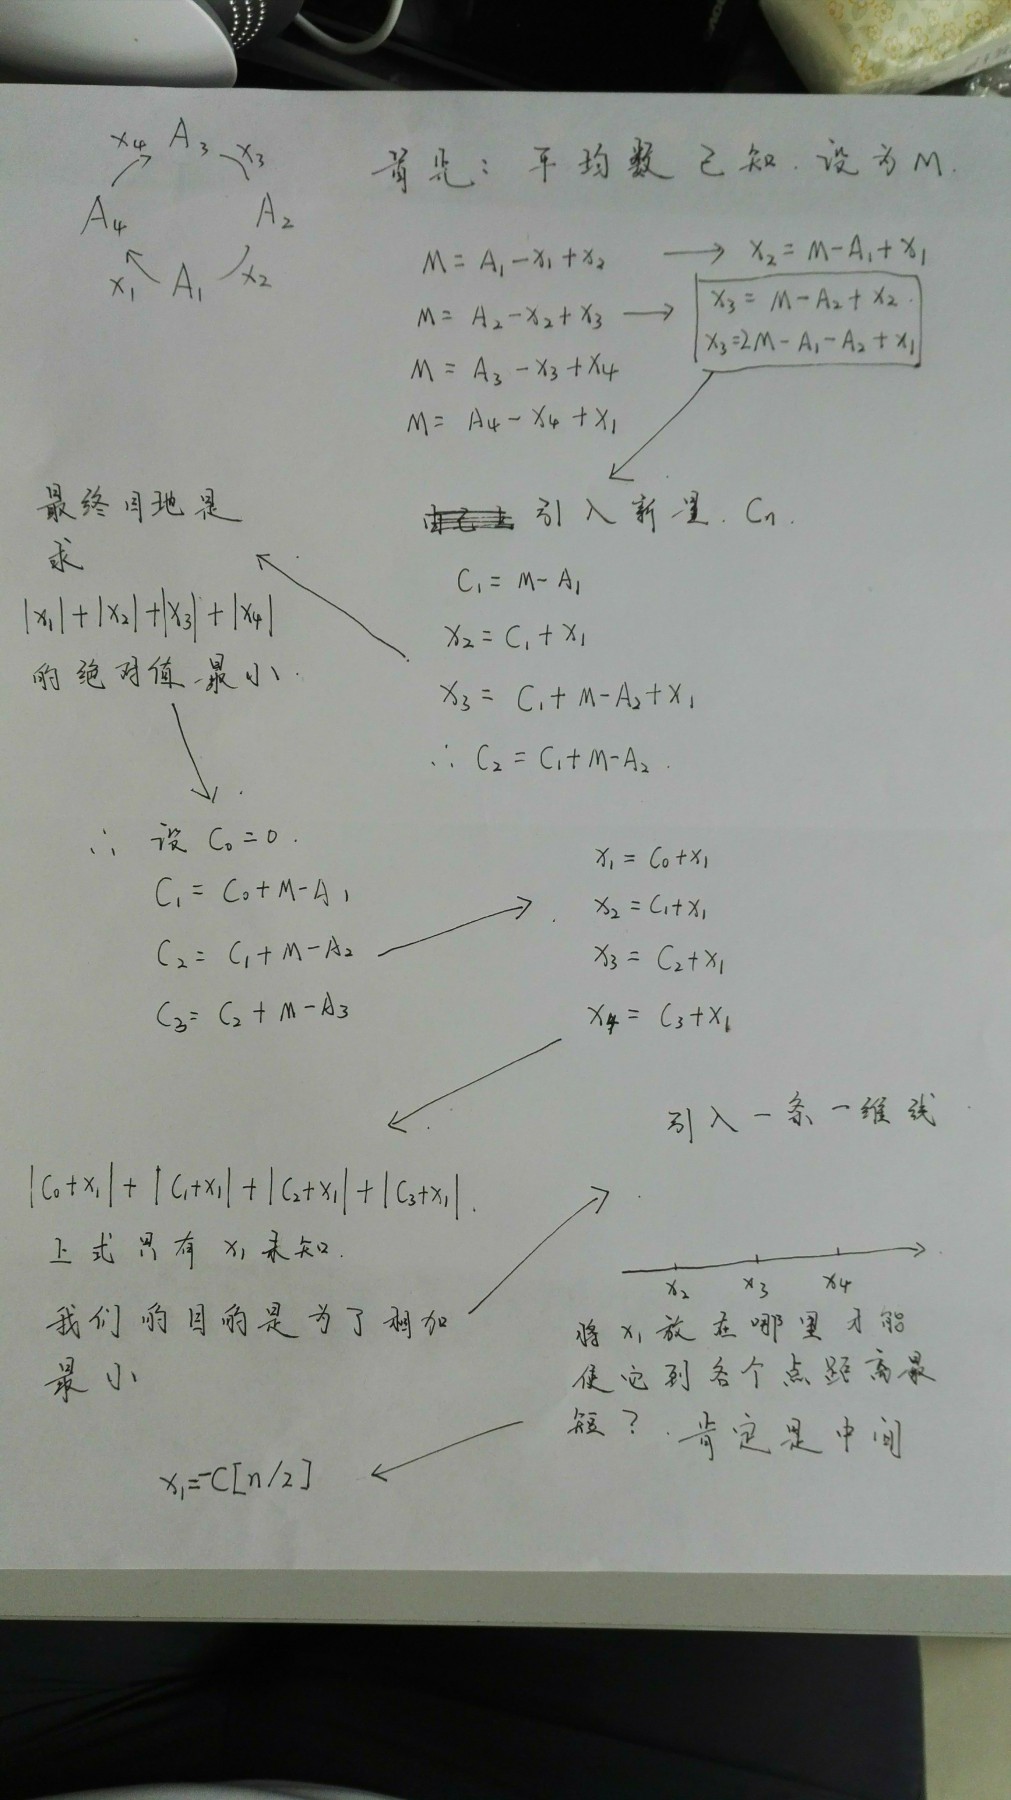 x4 A3 x3
A4 A2
x1 A1 x2
首先：平均数已知．设为M．
M = A1-x1+x2 → x2 = M-A1+x1
M = A2-x2+x3 → x3 = M-A2+x2.
x3=2M-A1-A2+x1
M = A3-x3+x4
M = A4-x4+x1
引入新量．Cn．
C1 = M-A1
x2 = C1+x1
x3 = C1+M-A2+x1
∴ C2 = C1+M-A2.
最终目地是
求
|x1|+|x2|+|x3|+|x4|
的绝对值最小．
∴ 设 C0=0.
C1 = C0+M-A1
C2 = C1+M-A2
C3 = C2+M-A3
x1 = C0+x1
x2 = C1+x1
x3 = C2+x1
x4 = C3+x1
|C0+x1|+|C1+x1|+|C2+x1|+|C3+x1|.
上式只有x1未知．
我们的目的是为了相加
最小
引入一条一维线
x2 x3 x4
将x1放在哪里才能
使它到各个点距离最
短？．肯定是中间
x1=-C[n/2]